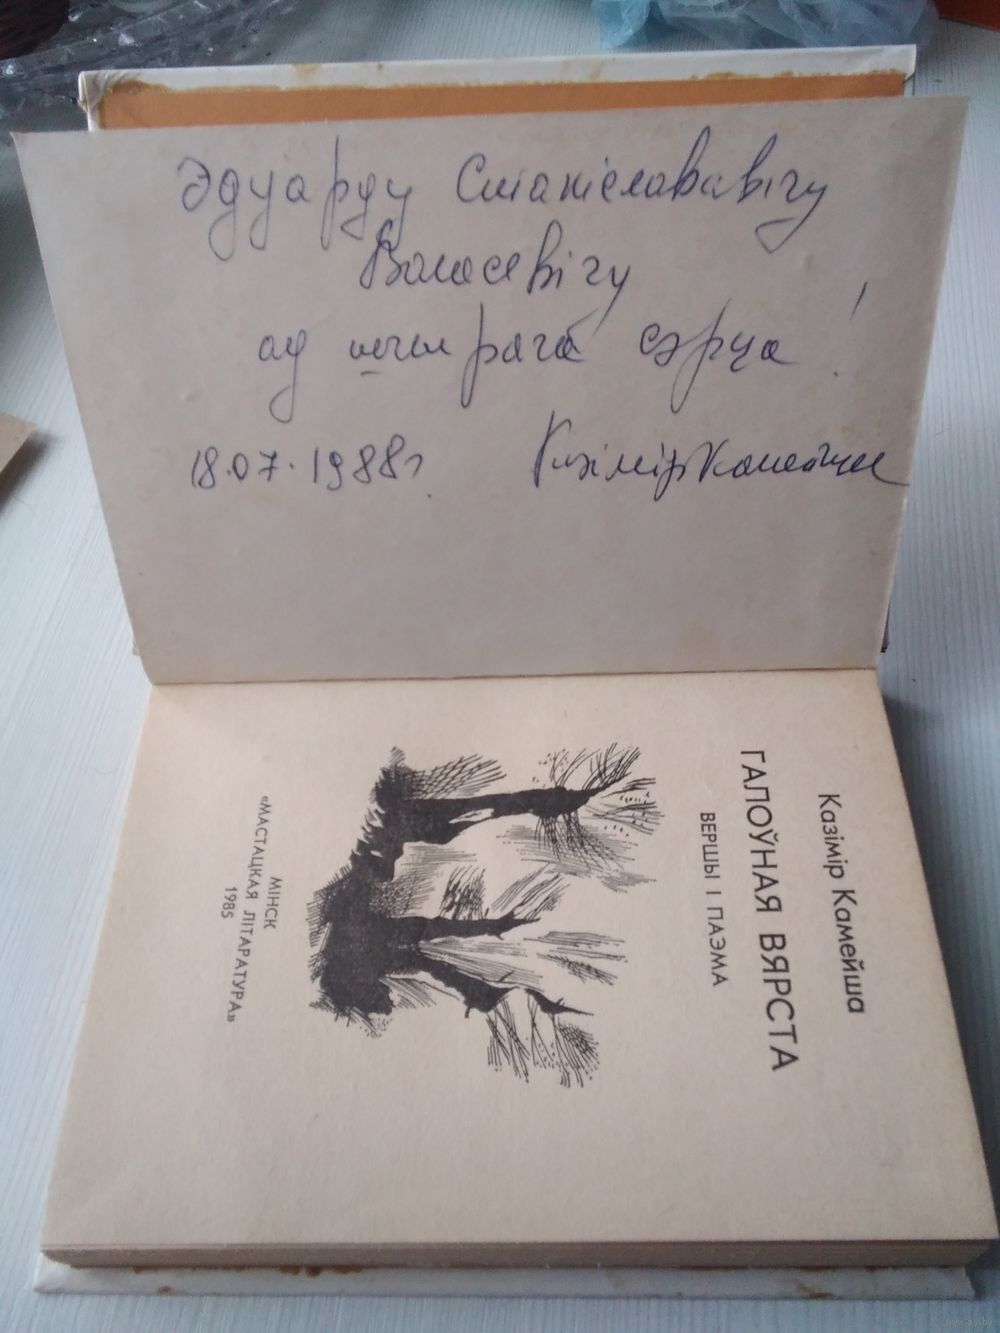 Эдуарду Станіслававічу
ад шчырага сэрца!
18.07.1988г. Казімір Камейша
Казімір Камейша
ГАЛОЎНАЯ ВЯРСТА
ВЕРШЫ І ПАЭМА
МІНСК
«МАСТАЦКАЯ ЛІТАРАТУРА»
1985